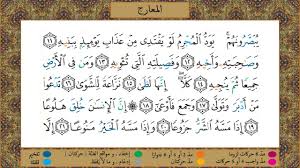 المعارج
يُبَصَّرُونَهُمْ ۚ يَوَدُّ ٱلْمُجْرِمُ لَوْ يَفْتَدِى مِنْ عَذَابِ يَوْمِئِذٍۭ بِبَنِيهِ ﴿١١﴾
وَصَـٰحِبَتِهِۦ وَأَخِيهِ ﴿١٢﴾ وَفَصِيلَتِهِ ٱلَّتِى تُـْٔوِيهِ ﴿١٣﴾ وَمَن فِى ٱلْأَرْضِ
جَمِيعًا ثُمَّ يُنجِيهِ ﴿١٤﴾ كَلَّآ ۖ إِنَّهَا لَظَىٰ ﴿١٥﴾ نَزَّاعَةً لِّلشَّوَىٰ ﴿١٦﴾ تَدْعُوا۟
مَنْ أَدْبَرَ وَتَوَلَّىٰ ﴿١٧﴾ وَجَمَعَ فَأَوْعَىٰٓ ﴿١٨﴾ ۞ إِنَّ ٱلْإِنسَـٰنَ خُلِقَ هَلُوعًا
﴿١٩﴾ إِذَا مَسَّهُ ٱلشَّرُّ جَزُوعًا ﴿٢٠﴾ وَإِذَا مَسَّهُ ٱلْخَيْرُ مَنُوعًا ﴿٢١﴾